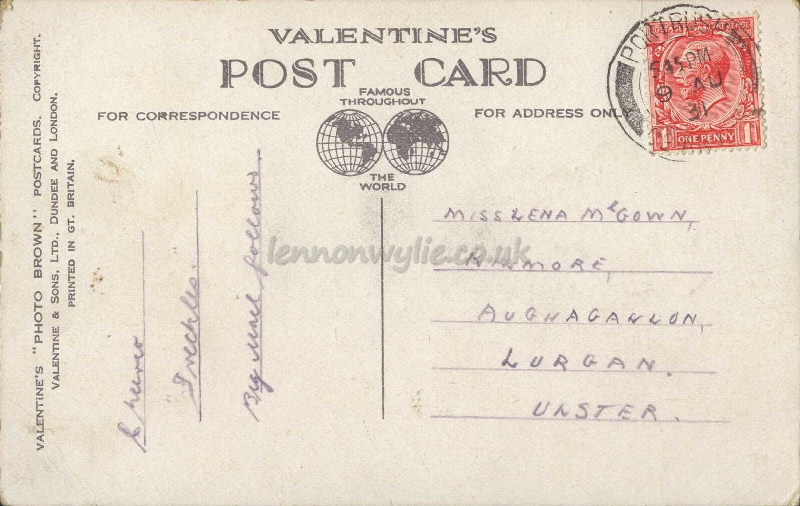 VALENTINE'S
POST CARD
FAMOUS
THROUGHOUT
THE
WORLD
FOR CORRESPONDENCE
FOR ADDRESS ONLY
PORTRUSH
5.45 PM
9 AU
31
ONE PENNY
1 1
MISS LENA McGOWN,
AUGHAGALLON,
LURGAN.
ULSTER.
Cheerio
"Freckles.
Big mail follows.
VALENTINE'S "PHOTO BROWN" POSTCARDS. COPYRIGHT.
VALENTINE & SONS, LTD., DUNDEE AND LONDON.
PRINTED IN GT. BRITAIN.
lennonwylie.co.uk